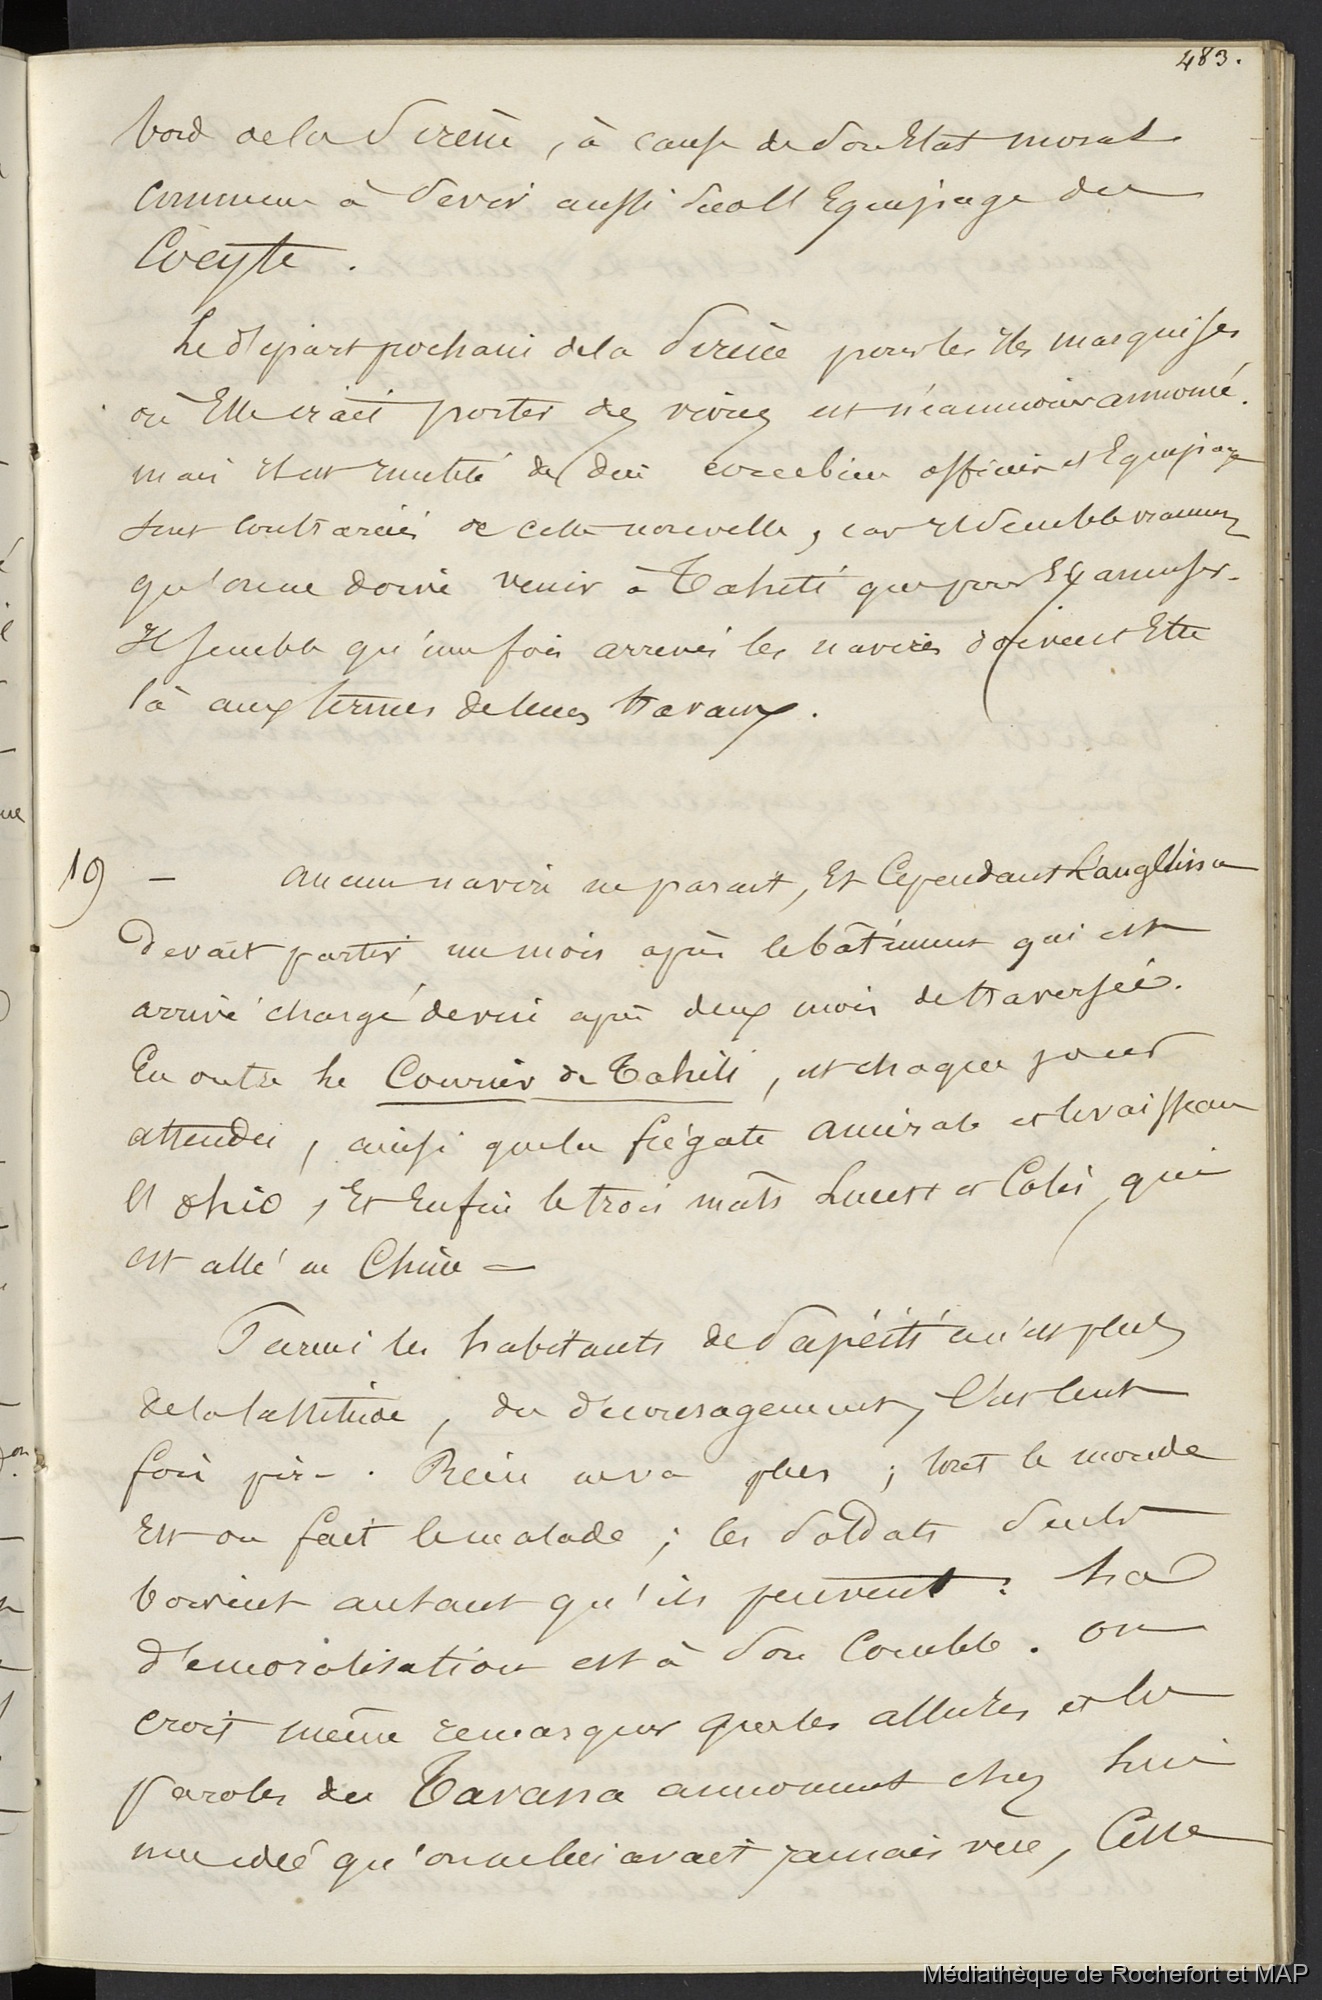 483.
bord de la Sirène, à cause de son Etat moral
commence à sévir aussi sur l'Equipage du
Cocyte.
Le départ prochain de la Sirène pour les Iles marquises
où Elle irait porter des vivres est néanmoins annoncé.
mais il est inutile de dire combien officiers et Equipage
sont contrariés de cette nouvelle, car il semble vraiment
qu'on ne doive venir à Tahiti que pour s'y amuser.
Il semble qu'une fois arrivés les navires doivent Etre
là aux termes de leurs travaux.
19 — aucun navire ne parait, Et Cependant
devait partir un mois après le bâtiment qui est
arrivé chargé de vin après deux mois de traversée.
En outre le Courrier de Tahiti, est chaque jour
attendu, ainsi que la frégate amirale et le vaisseau
l'Ohio, Et Enfin le trois mâts Lucas et Colés, qui
est allé en Chine —
Parmi les habitants de Papéiti ce n'est plus
de la lassitude, du découragement, C'est cent
fois pire. Rien ne va plus ; tout le monde
Est ou fait le malade ; les soldats seuls
boivent autant qu'ils peuvent : La
démoralisation est à son Comble. on
croit même remarquer que les allures et les
paroles du Tavana annoncent chez lui
une idée qu'on ne lui avait jamais vue, Celle
Médiathèque de Rochefort et MAP